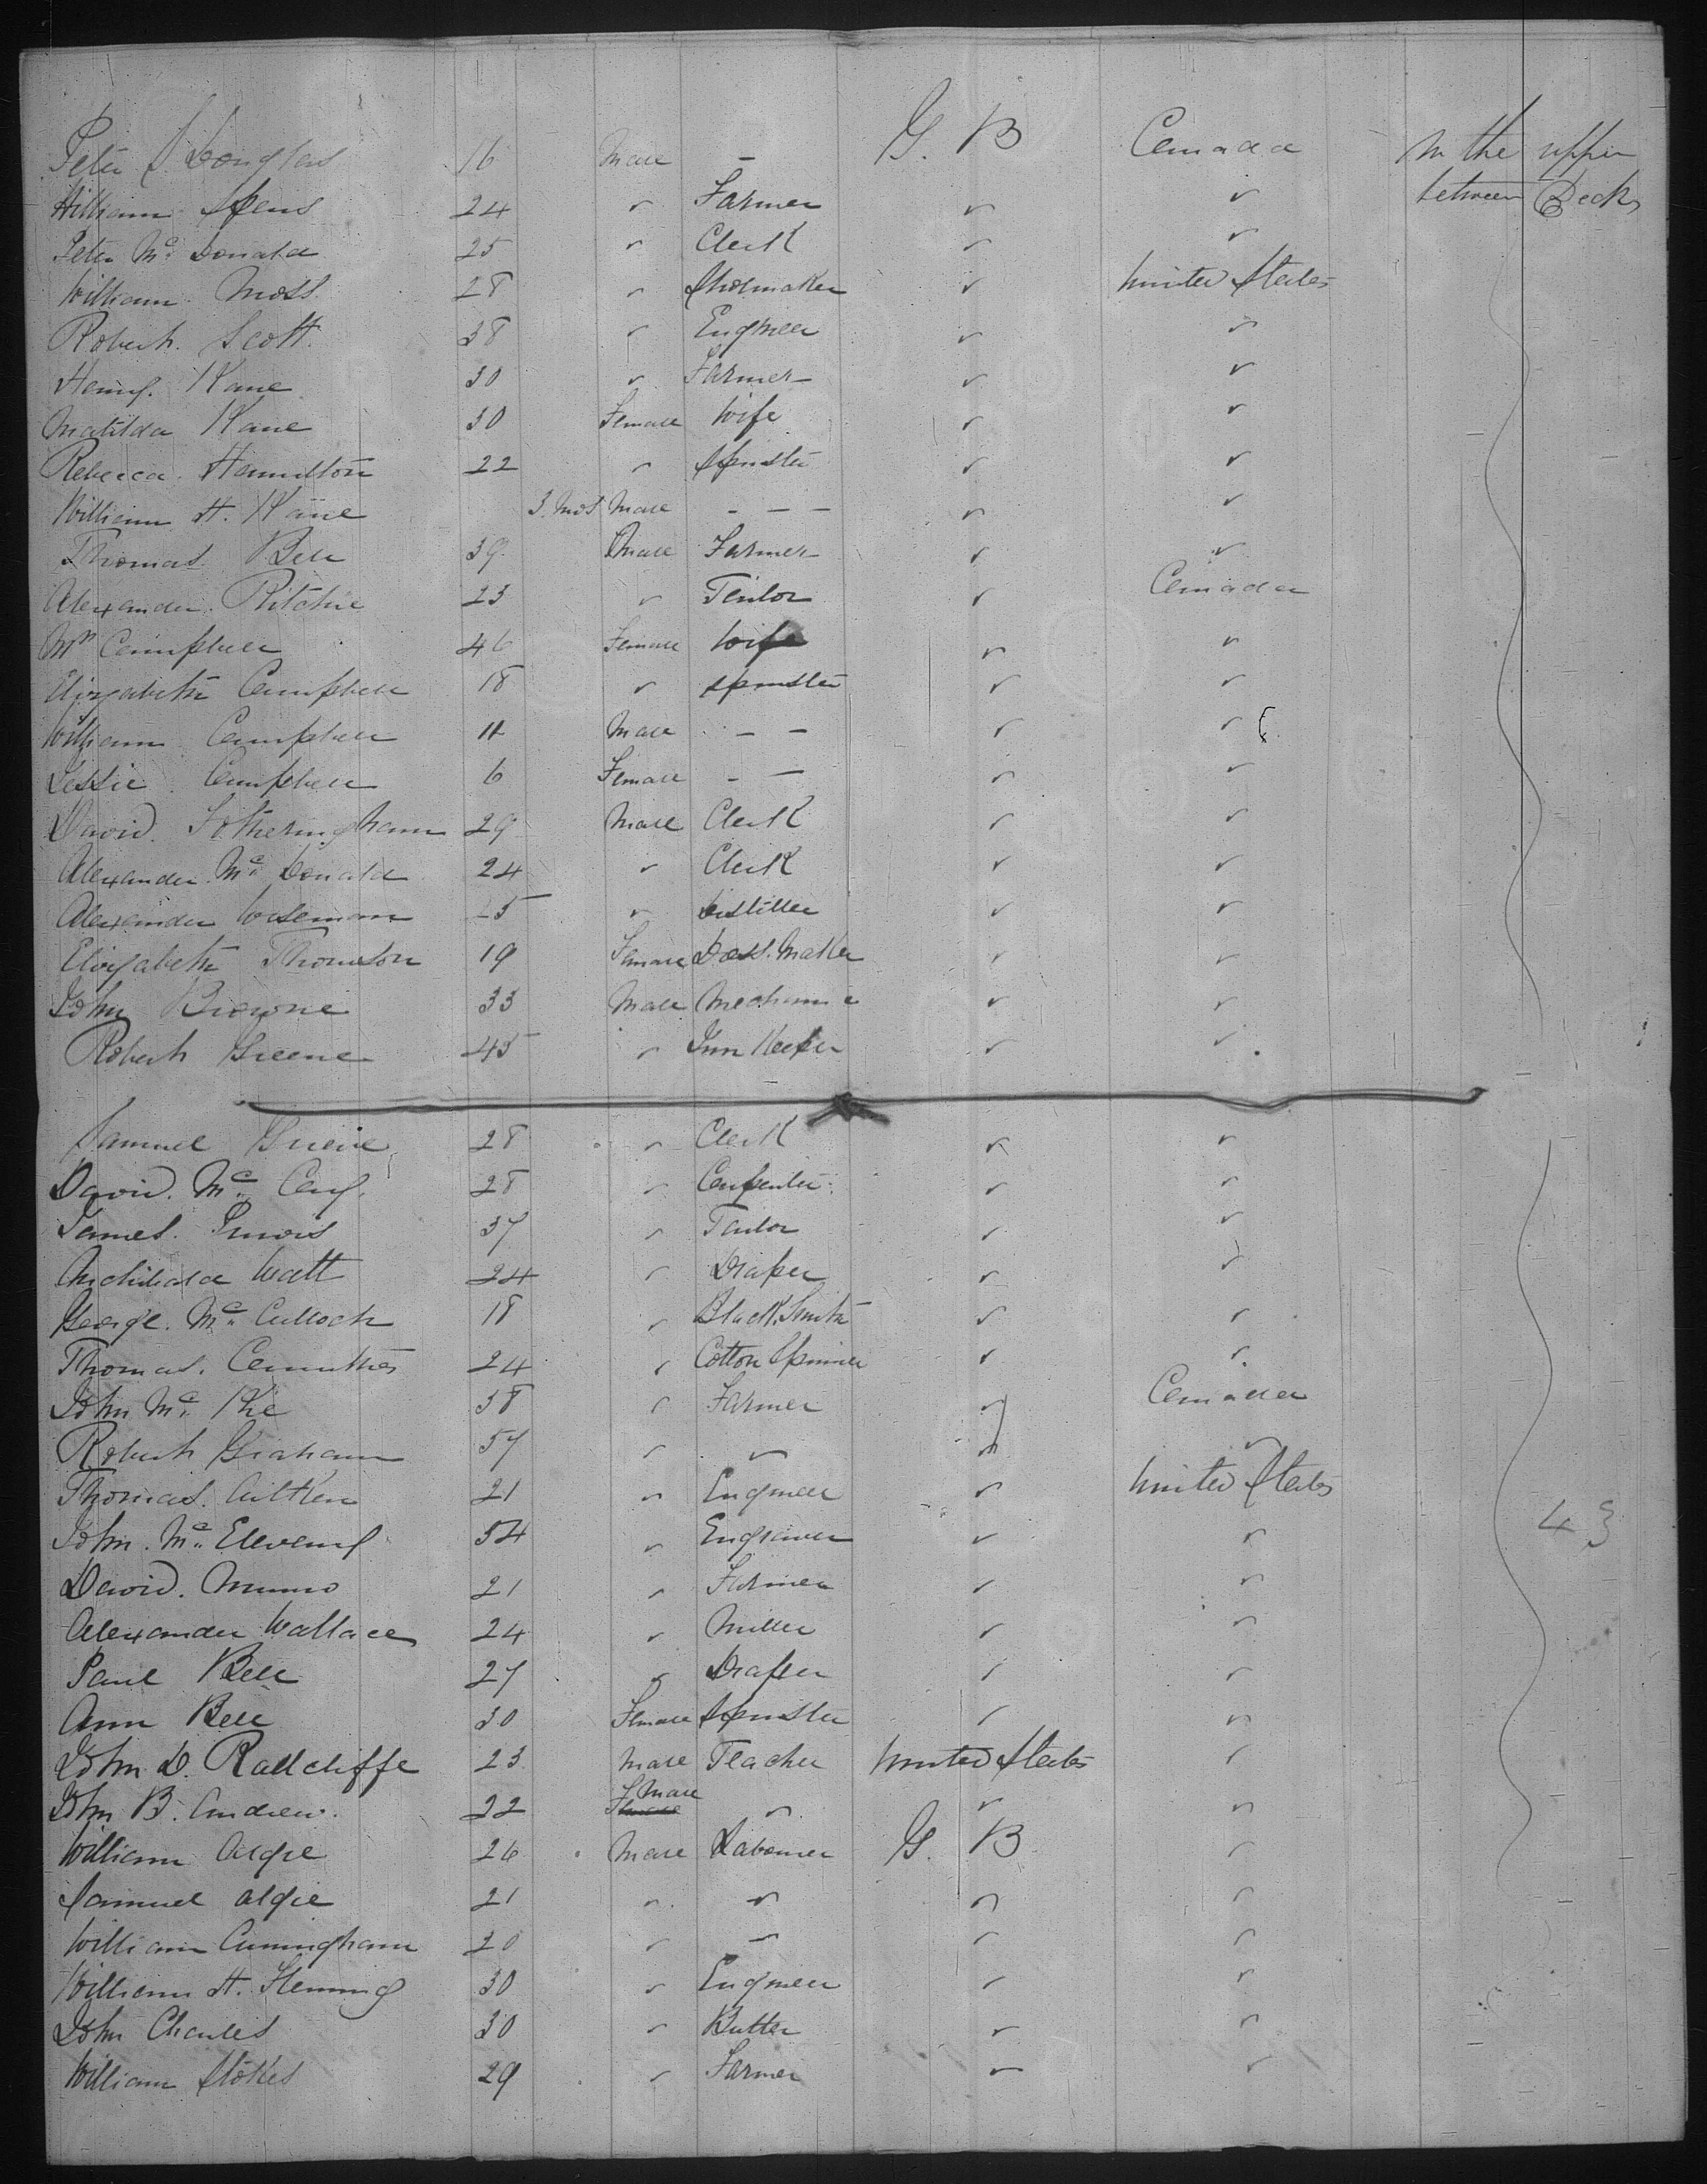 Peter J Douglas 16 Male — G. B Canada In the upper
William Spens 24 " Farmer " " between Decks
Peter Mc Donald 25 " Clerk " "
William Moss 28 " Shoemaker " United States
Robert Scott 38 " Engineer " "
Henry Kane 30 " Farmer " "
Matilda Kane 30 Female Wife " "
Rebecca Hamilton 22 " Spinster " "
William H. Kane 3. Mos Male - - - " "
Thomas Bell 39 Male Farmer " "
Alexander Ritchie 23 " Tailor " Canada
Mrs Campbell 46 Female Wife " "
Elizabeth Campbell 18 " Spinster " "
William Campbell 11 Male - - " "
Jessie Campbell 6 Female - - " "
David Fotheringham 29 Male Clerk " "
Alexander Mc Donald 24 " Clerk " "
Alexander Wiseman 25 " Distiller " "
Elizabeth Thomson 19 Female Dress Maker " "
John Browne 33 Male Mechanic " "
Robert Greene 45 " Inn Keeper " "
Samuel Greene 28 " Clerk " "
David Mc 28 " Carpenter " "
James 37 " Tailor " "
Archibald Watt 24 " Draper " "
George Mc Culloch 18 " Black Smith " "
Thomas Carruthers 24 " Cotton Spinner " "
John Mc Kie 38 " Farmer " Canada
Robert Graham 57 " " " "
Thomas Aitken 21 " Engineer " United States
John Mc Eleveny 54 " Engraver " " 43
David Munro 21 " Farmer " "
Alexander Wallace 24 " Miller " "
Paul Bell 27 " Draper " "
Ann Bell 30 Female Spinster " "
John D. Radcliffe 23 Male Teacher United States "
John B. Andrew 22 Male " " "
William Algie 26 Male Labourer G. B "
Samuel Algie 21 " " " "
William Cuningham 20 " " " "
William H. Fleming 30 " Engineer " "
John Charles 30 " Butler " "
William Stokes 29 " Farmer " "